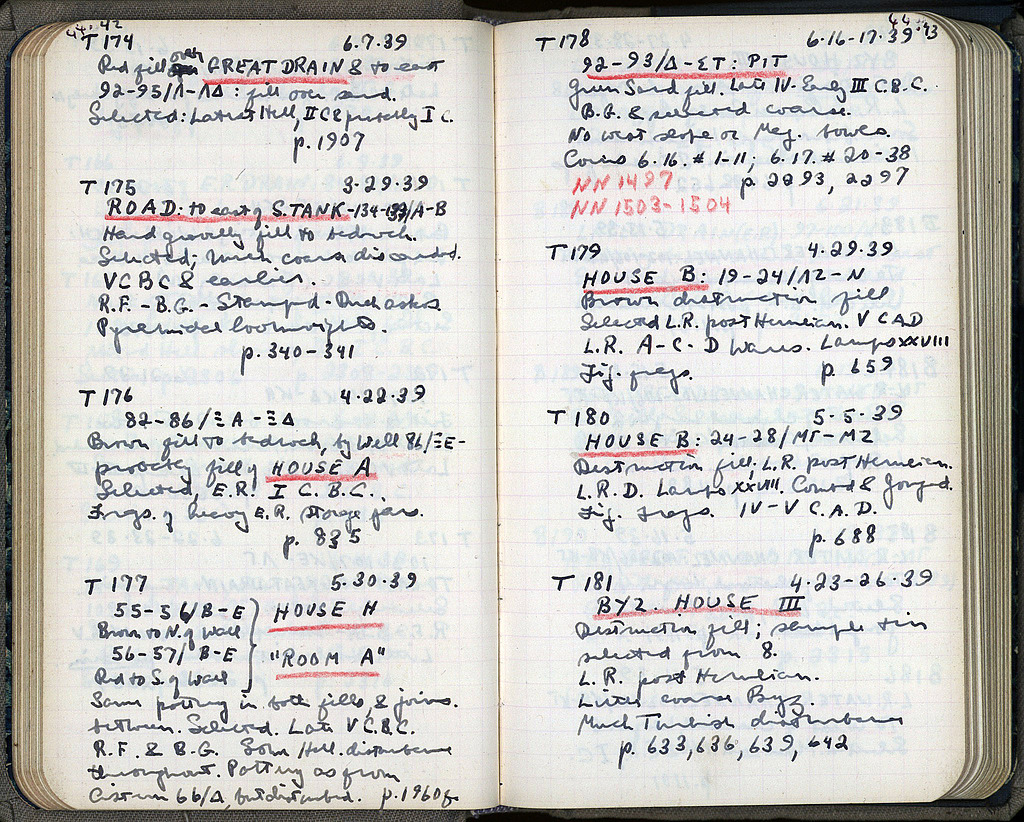 44.42
T 174 6.7.39
Red fill over GREAT DRAIN & to east
92-95/Λ-ΛΔ: fill over sand.
Selected: Latest Hell, II C & probably I C.
p. 1907
T 175 3.29.39
ROAD: to east of S. TANK-134-139/A-B
Hard gravelly fill to bedrock.
Selected; much coarse discarded.
V C BC & earlier.
R.F. - B.G. - Stamped - Duck askos
Pyramidal loomweights.
p. 340-341
T 176 4.22.39
82-86/ΞA-ΞΔ
Brown fill to bedrock, by Well 86/ΞE-
probably fill of HOUSE A
Selected, E.R. I C. B.C.
Frags. of heavy E.R. storage jars.
p. 835
T 177 5.30.39
55-56/B-E HOUSE H
Brown to N. of Wall
56-57/B-E "ROOM A"
Red to S. of Wall
Same pottery in both fills, & joins
between. Selected. Late V C.B.C.
R.F. & B.G. Some Hell. disturbance
throughout. Pottery as from
Cistern 66/Δ, but disturbed. p. 1960f.
44.43
T 178 6.16-17.39
92-93/Δ-ΣT: PIT
Green Sand fill. Late IV-Early III C.B.C.
B.G. & selected coarse.
No west slope or Meg. bowls.
Coins 6.16 #1-11; 6.17 #20-38
NN 1497 p. 2293, 2297
NN 1503-1504
T 179 4.29.39
HOUSE B: 19-24/ΛZ-N
Brown destruction fill
Selected L.R. post Herulian. V C A D
L.R. A-C-D Wares. Lamps XXVIII
Fig. frags. p. 659
T 180 5.5.39
HOUSE B: 24-28/MΓ-MZ
Destruction fill; L.R. post Herulian.
L.R. D. Lamps XXVIII. Combed & Gouged.
Fig. frags. IV-V C.A.D.
p. 688
T 181 4.23-26.39
BYZ. HOUSE III
Destruction fill; sample tin
selected from 8.
L.R. post Herulian.
Little coarse Byz.
Much Turkish disturbance
p. 633, 636, 639, 642